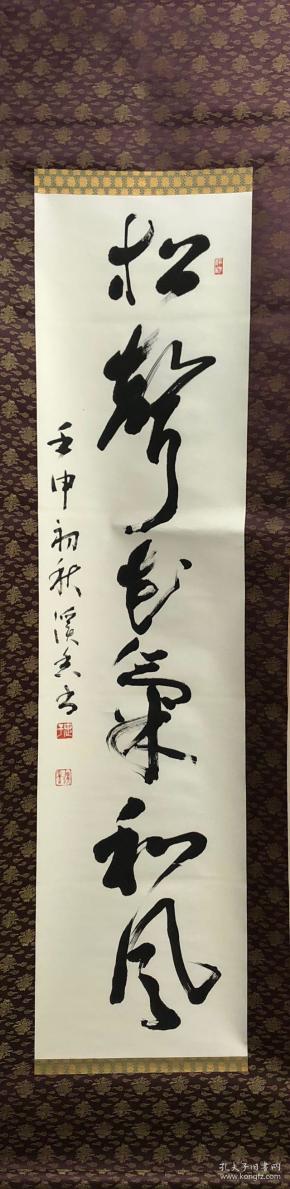 松聲花氣和風
壬申初秋溪香書
孔夫子旧书网
www.kongfz.com